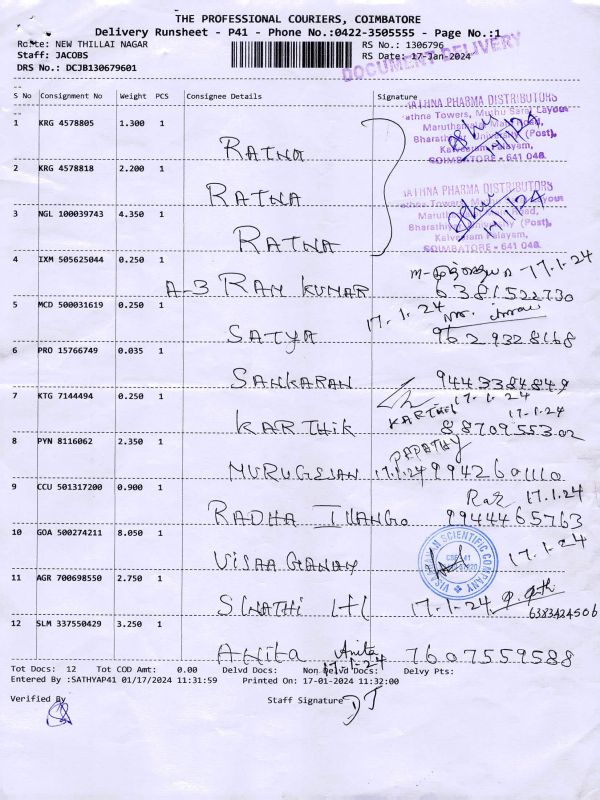 THE PROFESSIONAL COURIERS, COIMBATORE
Delivery Runsheet - P41 - Phone No.:0422-3505555 - Page No.:1
Route: NEW THILLAI NAGAR RS No.: 1306796
Staff: JACOBS RS Date: 17-Jan-2024
DRS No.: DCJB130679601
DOCUMENT DELIVERY
S No Consignment No Weight PCS Consignee Details Signature
1 KRG 4578805 1.300 1 RATNA
RATHNA PHARMA DISTRIBUTORS
Rathna Towers, Muthu Saral Layout
Bharathiar University (Post),
Kalveerampalayam,
COIMBATORE - 641 046
17/1/24
2 KRG 4578818 2.200 1 RATNA
RATHNA PHARMA DISTRIBUTORS
17/1/24
3 NGL 100039743 4.350 1 RATNA
Bharathiar University (Post),
Kalveerampalayam,
COIMBATORE - 641 046
4 IXM 505625044 0.250 1 A-3 RAM KUMAR
17.1.24
6381522730
5 MCD 500031619 0.250 1 SATYA
17.1.24
9629328168
6 PRO 15766749 0.035 1 SANKARAN 9443384849
17.1.24
7 KTG 7144494 0.250 1 KARTHIK KARTHIK 17.1.24
8870955302
8 PYN 8116062 2.350 1 MURUGESAN PAPATHY
17.1.24 9942601110
9 CCU 501317200 0.900 1 RADHA ILANGO Raz 17.1.24
9944465763
10 GOA 500274211 8.050 1 VISAA GANAY 17.1.24
SCIENTIFIC COMPANY
11 AGR 700698550 2.750 1 17.1.24
6383424506
12 SLM 337550429 3.250 1 ANITA Anita 17.1.24 7607559588
Tot Docs: 12 Tot COD Amt: 0.00 Delvd Docs: Non Delvd Docs: Delvy Pts:
Entered By :SATHYAP41 01/17/2024 11:31:59 Printed On: 17-01-2024 11:32:00
Verified By Staff Signature DJ